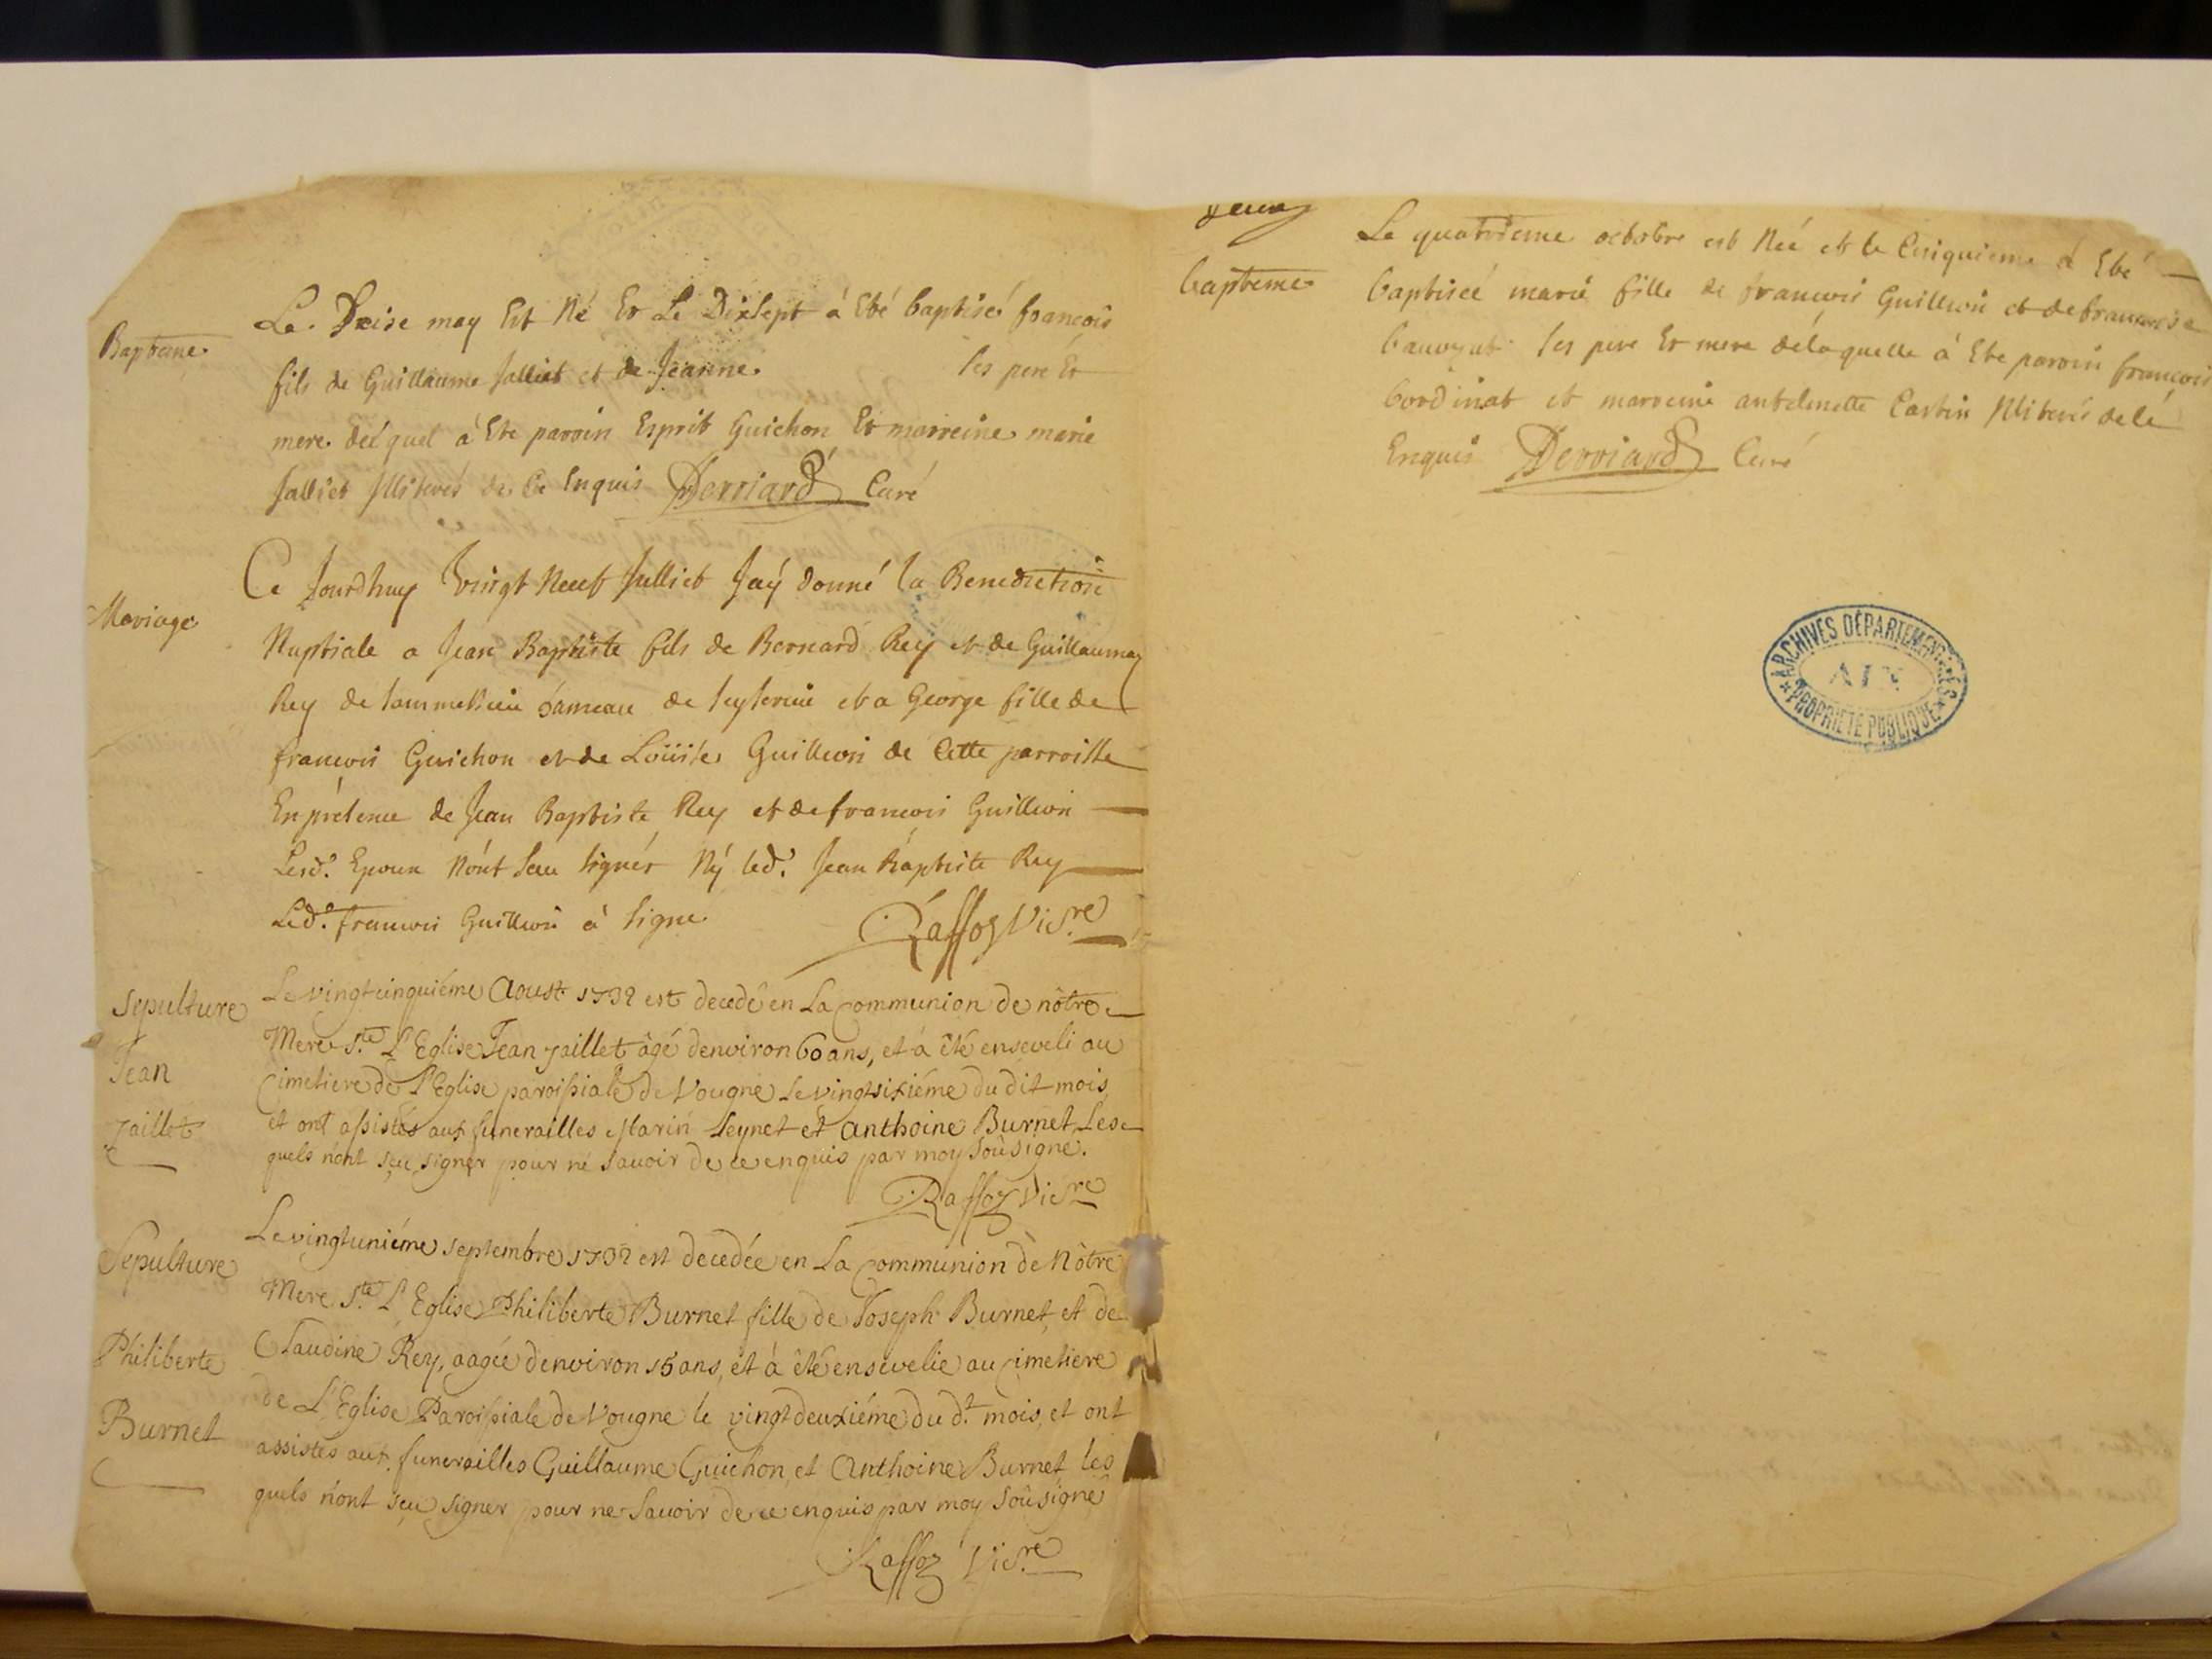 Bapteme
Le Seise may Est Né Et Le Dixsept à Eté baptisé françois
fils de Guillaume Jalliet et de Jeanne ses pere Et
mere dequel à Ete paroin Esprit Guichon Et marreine marie
Jalliet Illiterés de Ce Enquis Derriard Curé
Mariage
Ce Jourdhuy Vingt Neuf Julliet Jay donné la Benediction
Nuptiale a Jean Baptiste fils de Bernard Rey et de Guillauma
Rey de hameau de et a George fille de
françois Guichon et de Loüise Guillion de Cette parroisse
En présence de Jean Baptiste Rey et de françois Guillion
Lesd. Epoux Nónt Seu signér Ný led. Jean Baptiste Rey
Led. françois Guillion à signe
Raffoz Vicre
Sepulture
Jean
Jaillet
Le vingtcinquiéme Aoust 1732 est decedé en La Communion de nôtre
Mere Ste L'Eglise Jean Jaillet âgé denviron 60 ans, et à êté enseveli au
Cimetiere de L'Eglise paroissiale de Vougne Le vingtsixiéme du dit mois
et ont assistés aux funerailles Marin Leynet et Anthoine Burnet Les
quels nónt sçeu signer pour né savoir de ce enquis par moy soûsigné.
Raffoz Vicre
Sepulture
Philiberte
Burnet
Le vingtuniéme septembre 1732 est decedée en La Communion de Nôtre
Mere Ste L'Eglise Philiberte Burnet fille de Joseph Burnet, et de
Claudine Rey, aagée denviron 15 ans, et à êté ensevelie au Cimetiere
de L'Eglise Paroissiale de Vougne le vingtdeuxiéme du dt mois, et ont
assistés aux funerailles Guillaume Guichon, et Anthoine Burnet les
quels nónt sçeu signer pour ne savoir de ce enquis par moy soûsigné
Raffoz Vicre
baptéme
Le quatrieme octobre est Née et le Cinquieme à Eté
baptisée marie fille de françois Guillion et de françoise
ses pere Et mere délaquelle à Ete paroin françois
bordinat et marreine antelmette Illiterés de cé
Enquis Derriard Curé
ARCHIVES DÉPARTEMENTALES
AIN
PROPRIÉTÉ PUBLIQUE